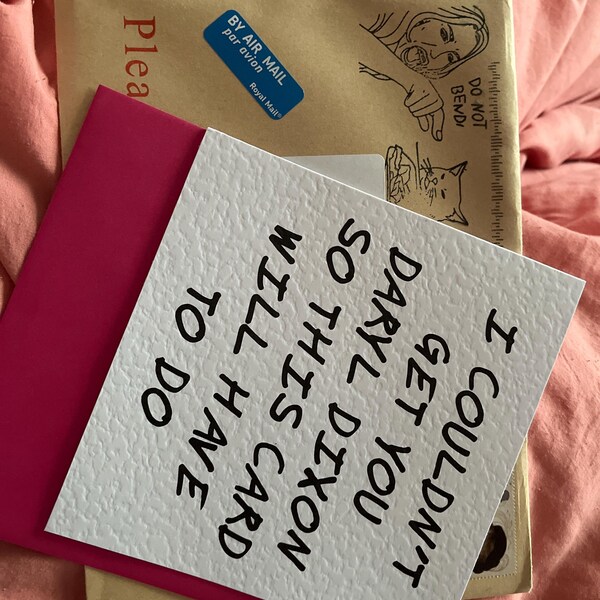 Plea
BY AIR MAIL
par avion
Royal Mail®
DO NOT
BEND!
I COULDN'T
GET YOU
DARYL DIXON
SO THIS CARD
WILL HAVE
TO DO